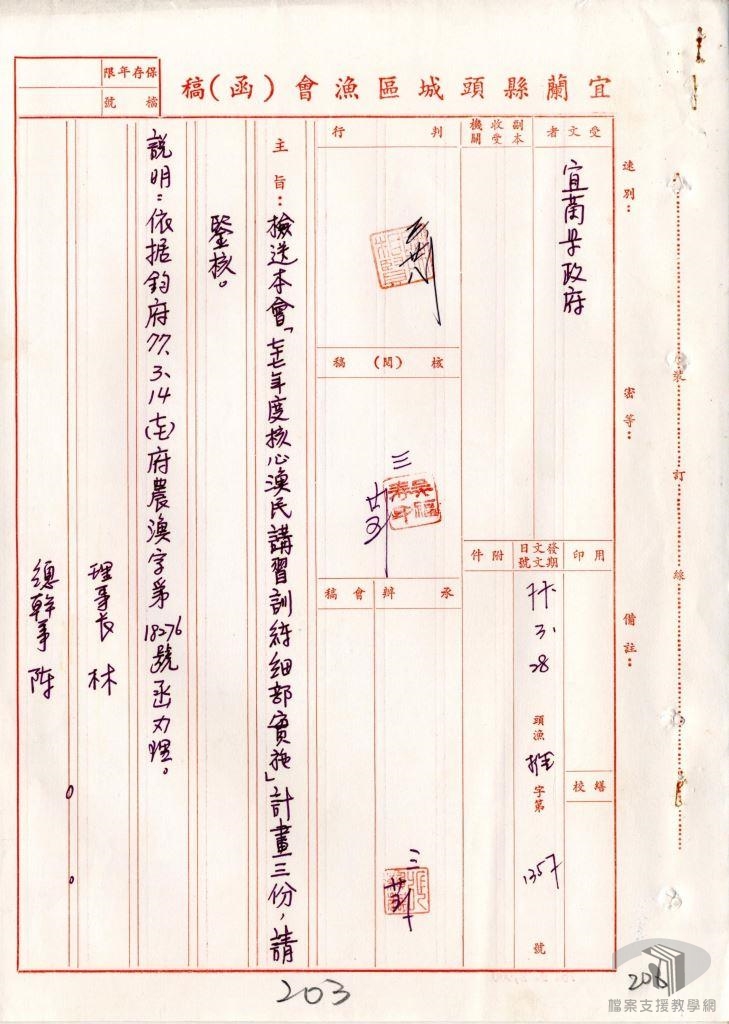 宜蘭縣頭城區漁會(函)稿
保存年限
檔號
速別:
密等:
備註:
裝訂線
受文者
宜蘭県政府
副本收受機關
發文日期文號
77.
3.
28
頭漁
推
字第
1357
號
附件
用印
繕校
判行
核(閱)稿
三
承辦會稿
三
主旨:檢送本會「七七年度核心漁民講習訓練細部實施」計畫三份,請
鑒核。
說明:依据鈞府77.3.14(七七)府農漁字第18276號函办理。
理事長 林
總幹事 陈
203
206
檔案支援教學網